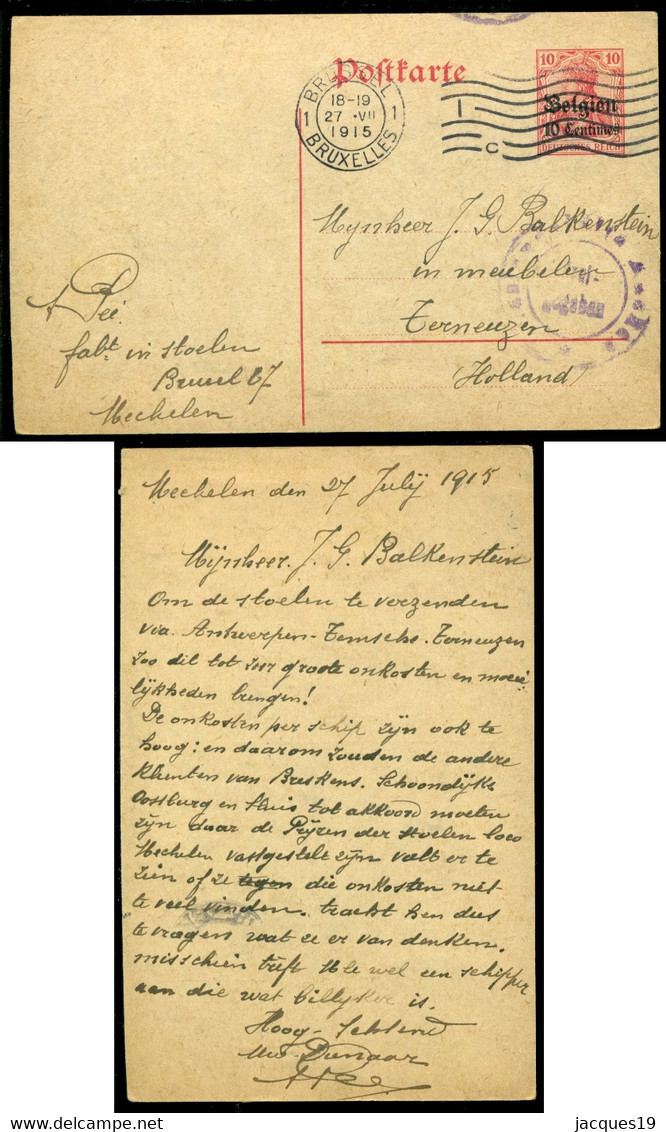 Postkarte
10 10
Belgien
10 Centimes
DEUTSCHES REICH
BRUSSEL
1 18-19 1
27 ·VII
1915
BRUXELLES
C
Mynheer J. G. Balkenstein
in meubelen
Terneuzen
Holland
A Peé.
fabt in stoelen
Bruul 67
Mechelen
Mechelen den 27 July 1915
Mijnheer J. G. Balkenstein
Om de stoelen te verzenden
via Antwerpen-Temsche-Terneuzen
zoo dit tot zeer groote onkosten en moeie
lijkheden brengen!
De onkosten per schip zyn ook te
hoog: en daarom zouden de andere
klienten van Breskens. Schoondijke
Oostburg en Sluis tot akkoord moeten
zyn daar de Pryzen der stoelen loco
Mechelen vastgesteld zyn valt er te
zien of ze tegen die onkosten niet
te veel vinden. tracht hen dus
te vragen wat ze er van denken.
misschien treft U wel een schipper
aan die wat billyker is.
Hoog-
Uw Dienaar
jacques19